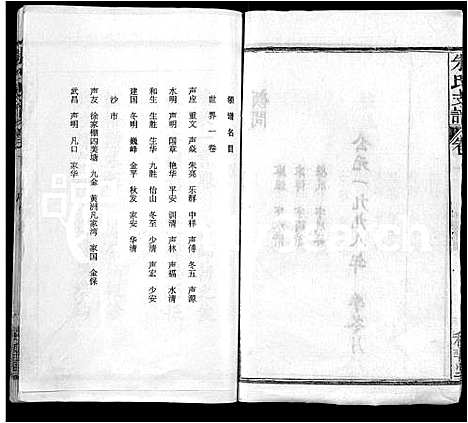 朱氏支譜
公元一九九八年
领谱名目
世界一卷
声应 重文 声焱 朱亮 乐群 中祥 声傅 冬五 声源
水明 声明 国章 艳华 平安 训清 声林 声福 水清
和生 生胜 生华 九胜 怡山 冬至 少清 声宏 少安
建国 冬明 巍峰 金平 秋发 家安 华清
沙市
声友 徐家棚四美塘 九金 黄洲凡家湾 家国 金保
武昌 声明 凡口 家华